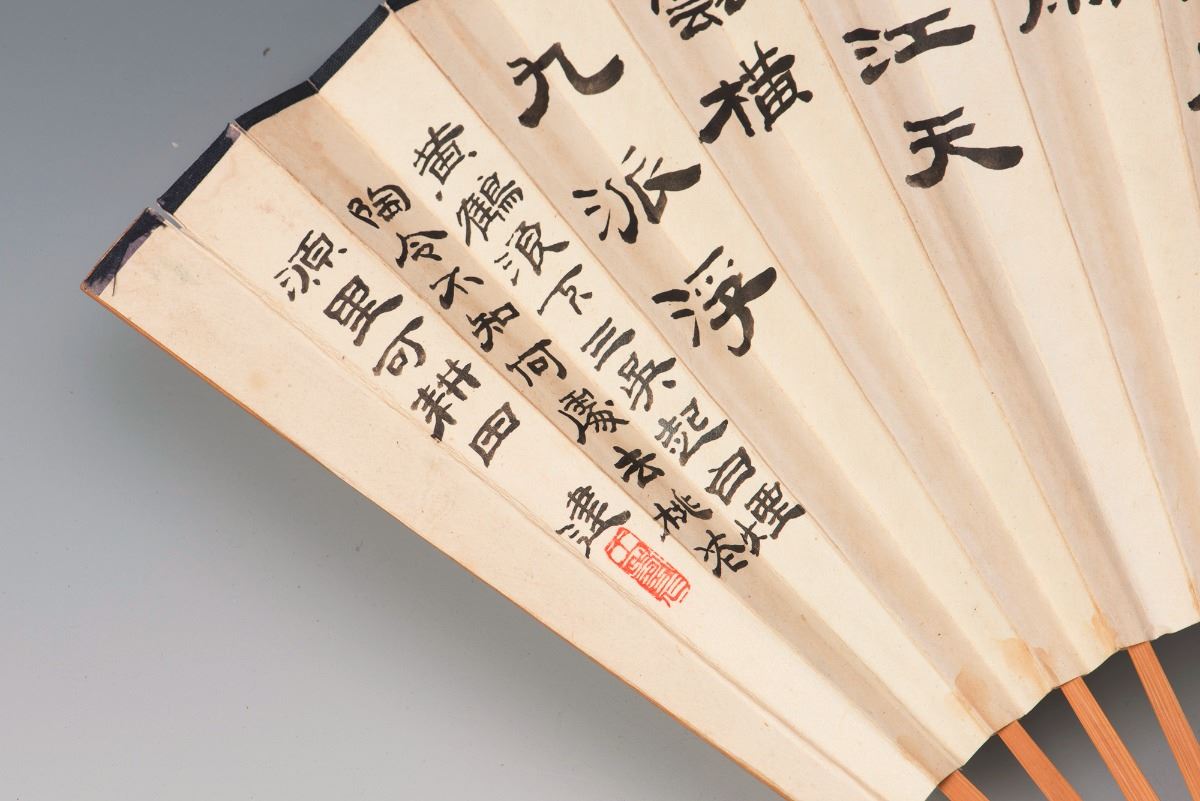 江天
雲横
九派浮
黄鶴浪下三吳起白煙
陶令不知何處去桃花
源里可耕田